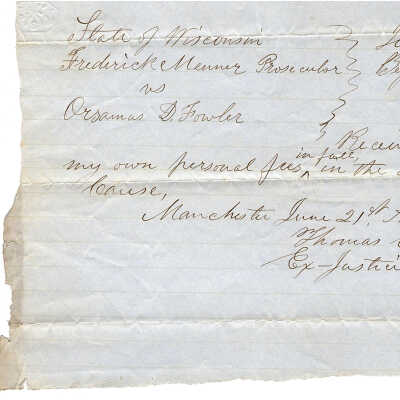 State of Wisconsin
Frederick Menner Prosecutor
vs
Orsamas D. Fowler
Recei
my own personal fees in full, in the
Cause,
Manchester June 21st
Thomas
Ex-Justic